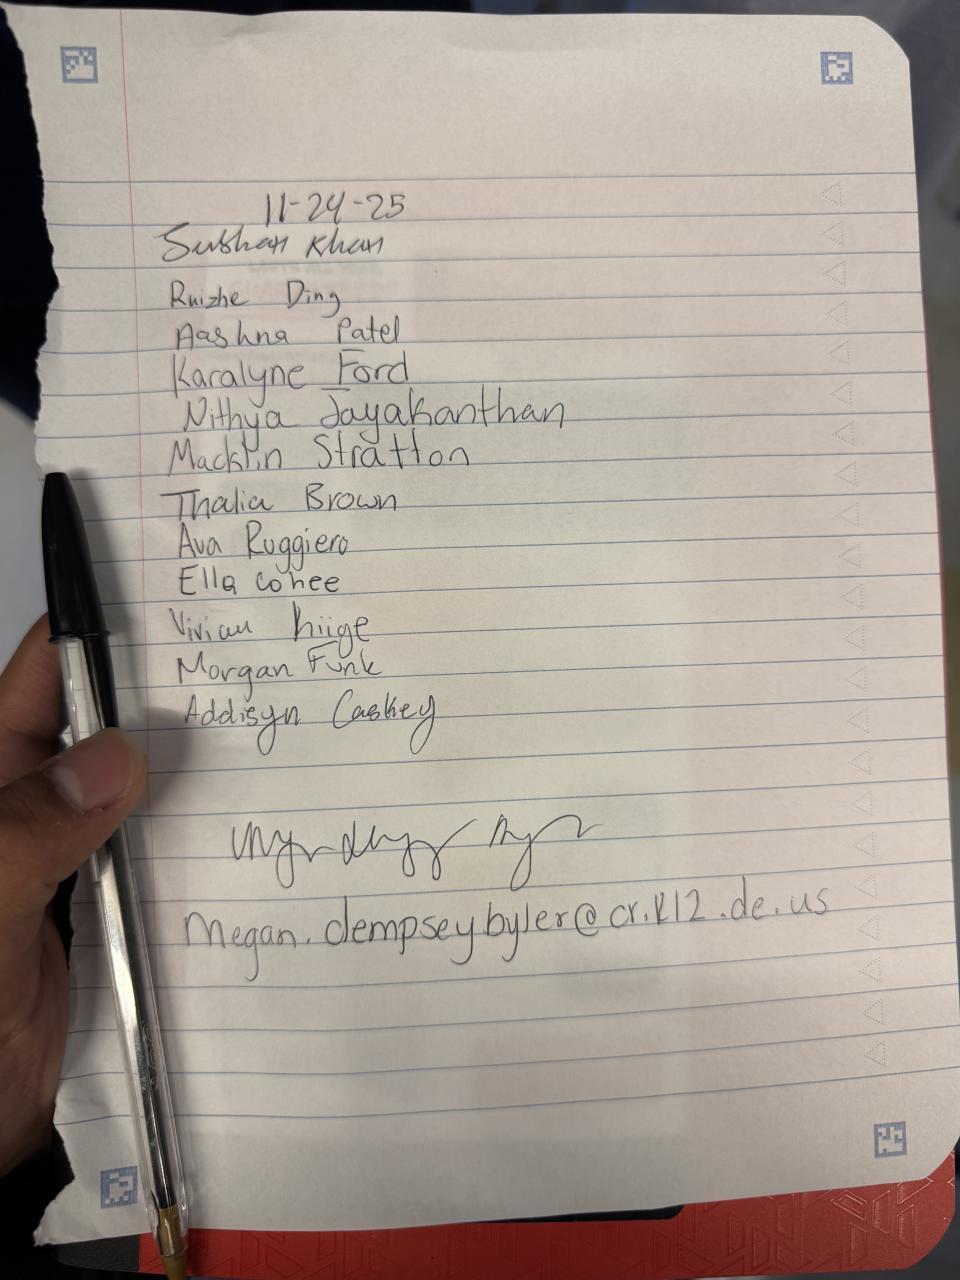 11-24-25
Subhan Khan
Ruizhe Ding
Aashna Patel
Karalyne Ford
Nithya Jayakanthan
Macklin Stratton
Thalia Brown
Ava Ruggiero
Ella Cohee
Vivian Kiige
Morgan Funk
Addisyn Caskey
Megan.dempseybyler@cr.k12.de.us